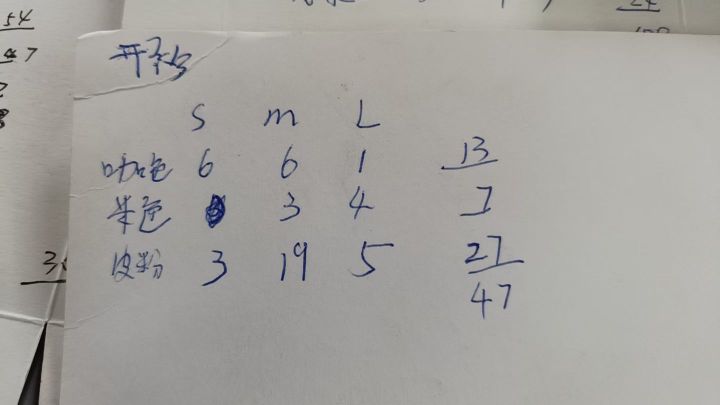 开衫
S m L
咖色 6 6 1 13
米色 3 4 7
皮粉 3 19 5 27
47
54
47